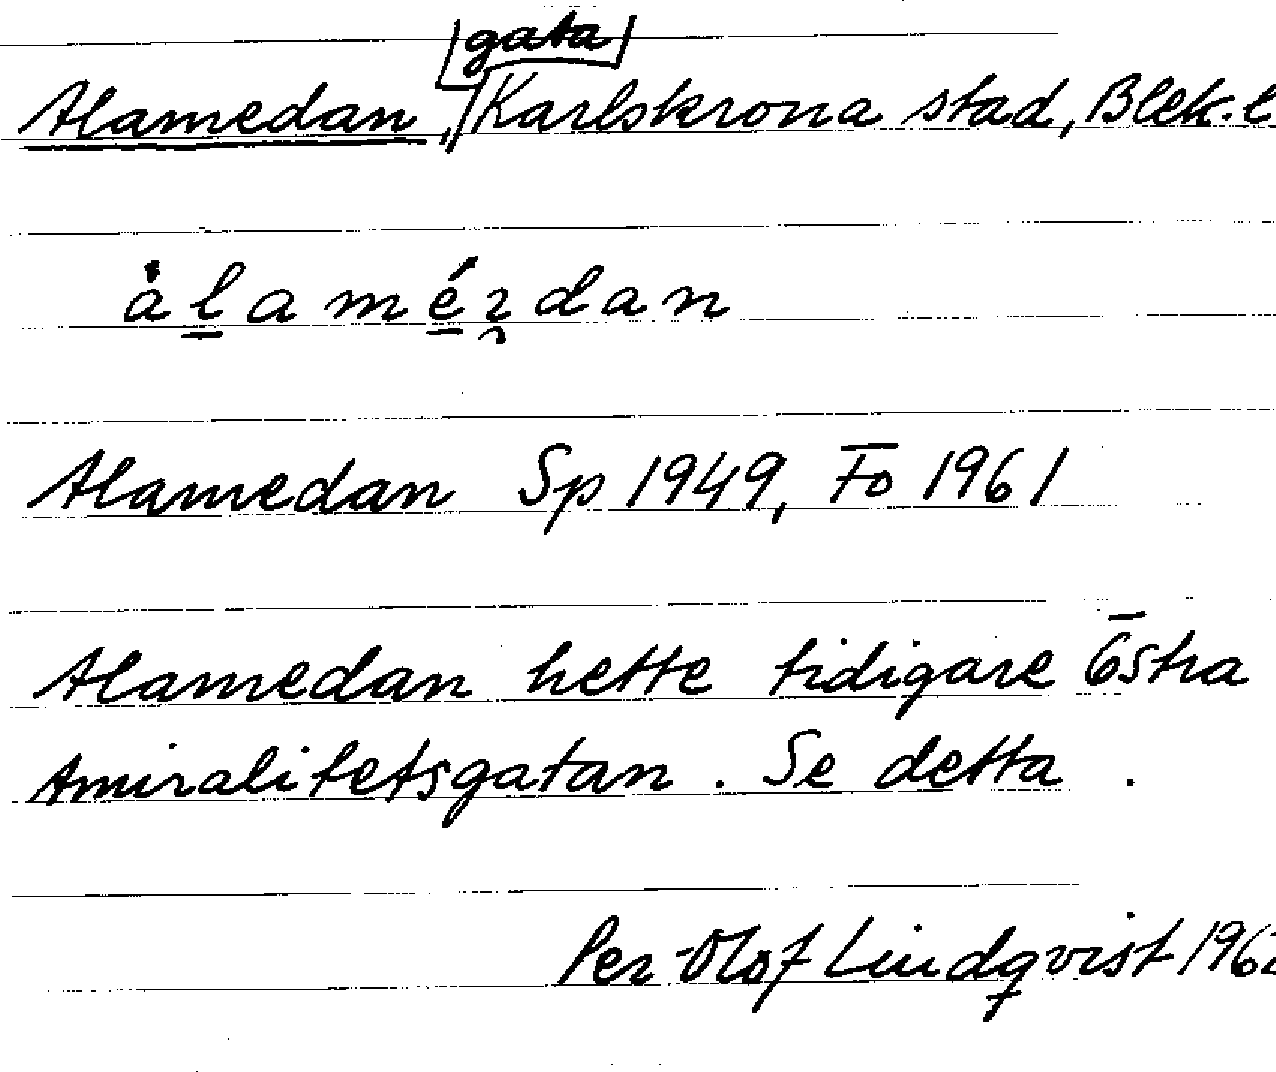 Alamedan, gata, Karlskrona stad, Blek. l
Alamedan Sp 1949, Fo 1961
Alamedan hette tidigare Östra
Amiralitetsgatan. Se detta.
Per-Olof Lindqvist 196